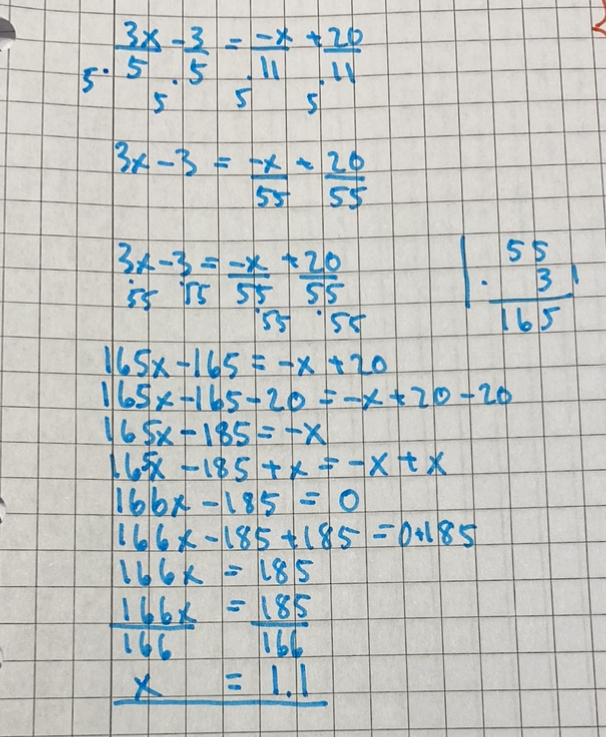 3x/5 - 3/5 = -x/11 + 20/11
5· ·5 5· 5·
3x - 3 = -x/55 + 20/55
3x - 3 = -x/55 + 20/55
·55 ·55 ·55 ·55
165x - 165 = -x + 20
165x - 165 - 20 = -x + 20 - 20
165x - 185 = -x
165x - 185 + x = -x + x
166x - 185 = 0
166x - 185 + 185 = 0+185
166x = 185
166x/166 = 185/166
x = 1.1
55
· 3
165